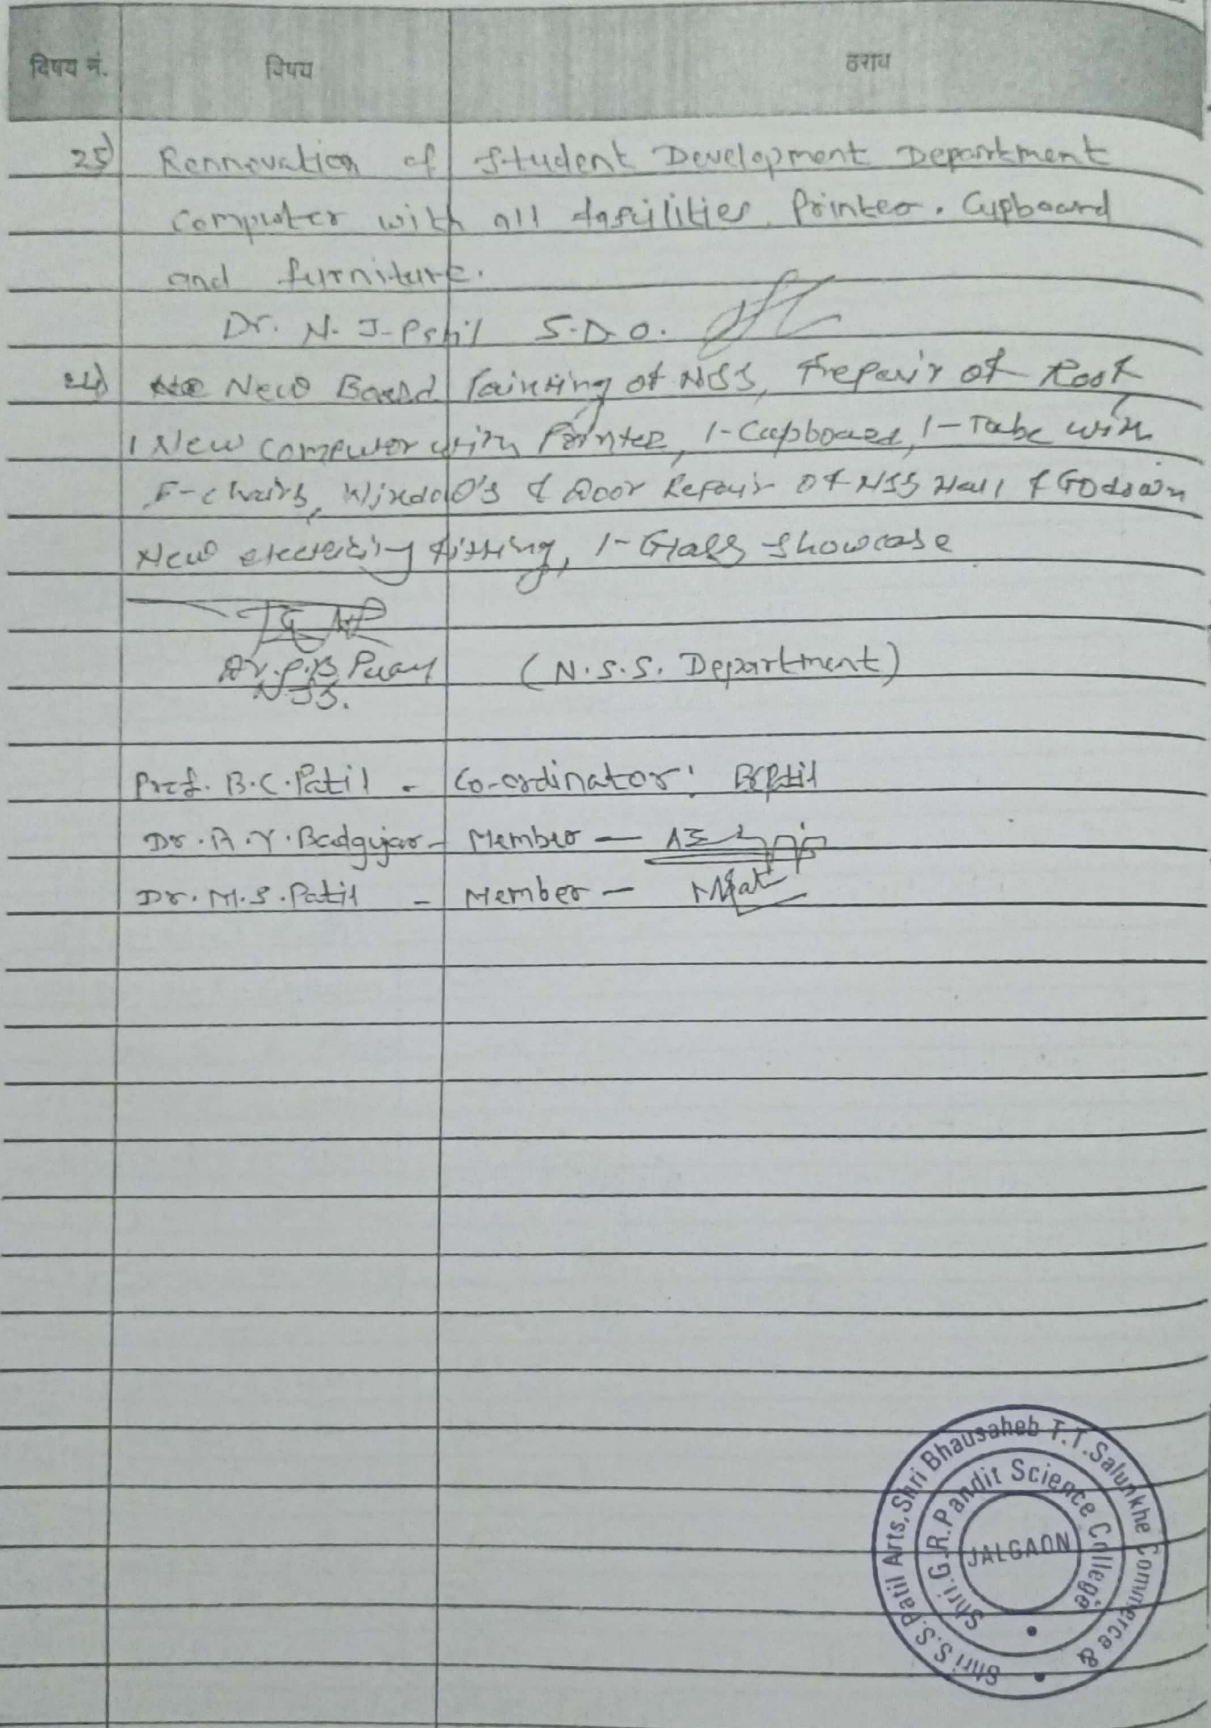 विषय नं. विषय ठराव
25) Rennovation of Student Development Department
Computer with all fascilities, Printer. Cupboard
and furniture.
Dr. N. J. Patil S.D.O.
New Board Painting of NSS, repair of Roof
1 New Computer with Printer, 1-Cupboard, 1-Table with
chairs, Window's & Door Repair of NSS Hall & Godown
New electricity fitting, 1-Glass Showcase
Dr. P.B. (N.S.S. Department)
NSS.
Prof. B.C. Patil - Co-ordinator: BCPatil
Dr. A. Y. Badgujar - Member -
Dr. M. S. Patil - Member -
Shri S.S. Patil Arts, Shri Bhausaheb T.T. Salunkhe Commerce &
Shri. G.R. Pandit Science College
JALGAON